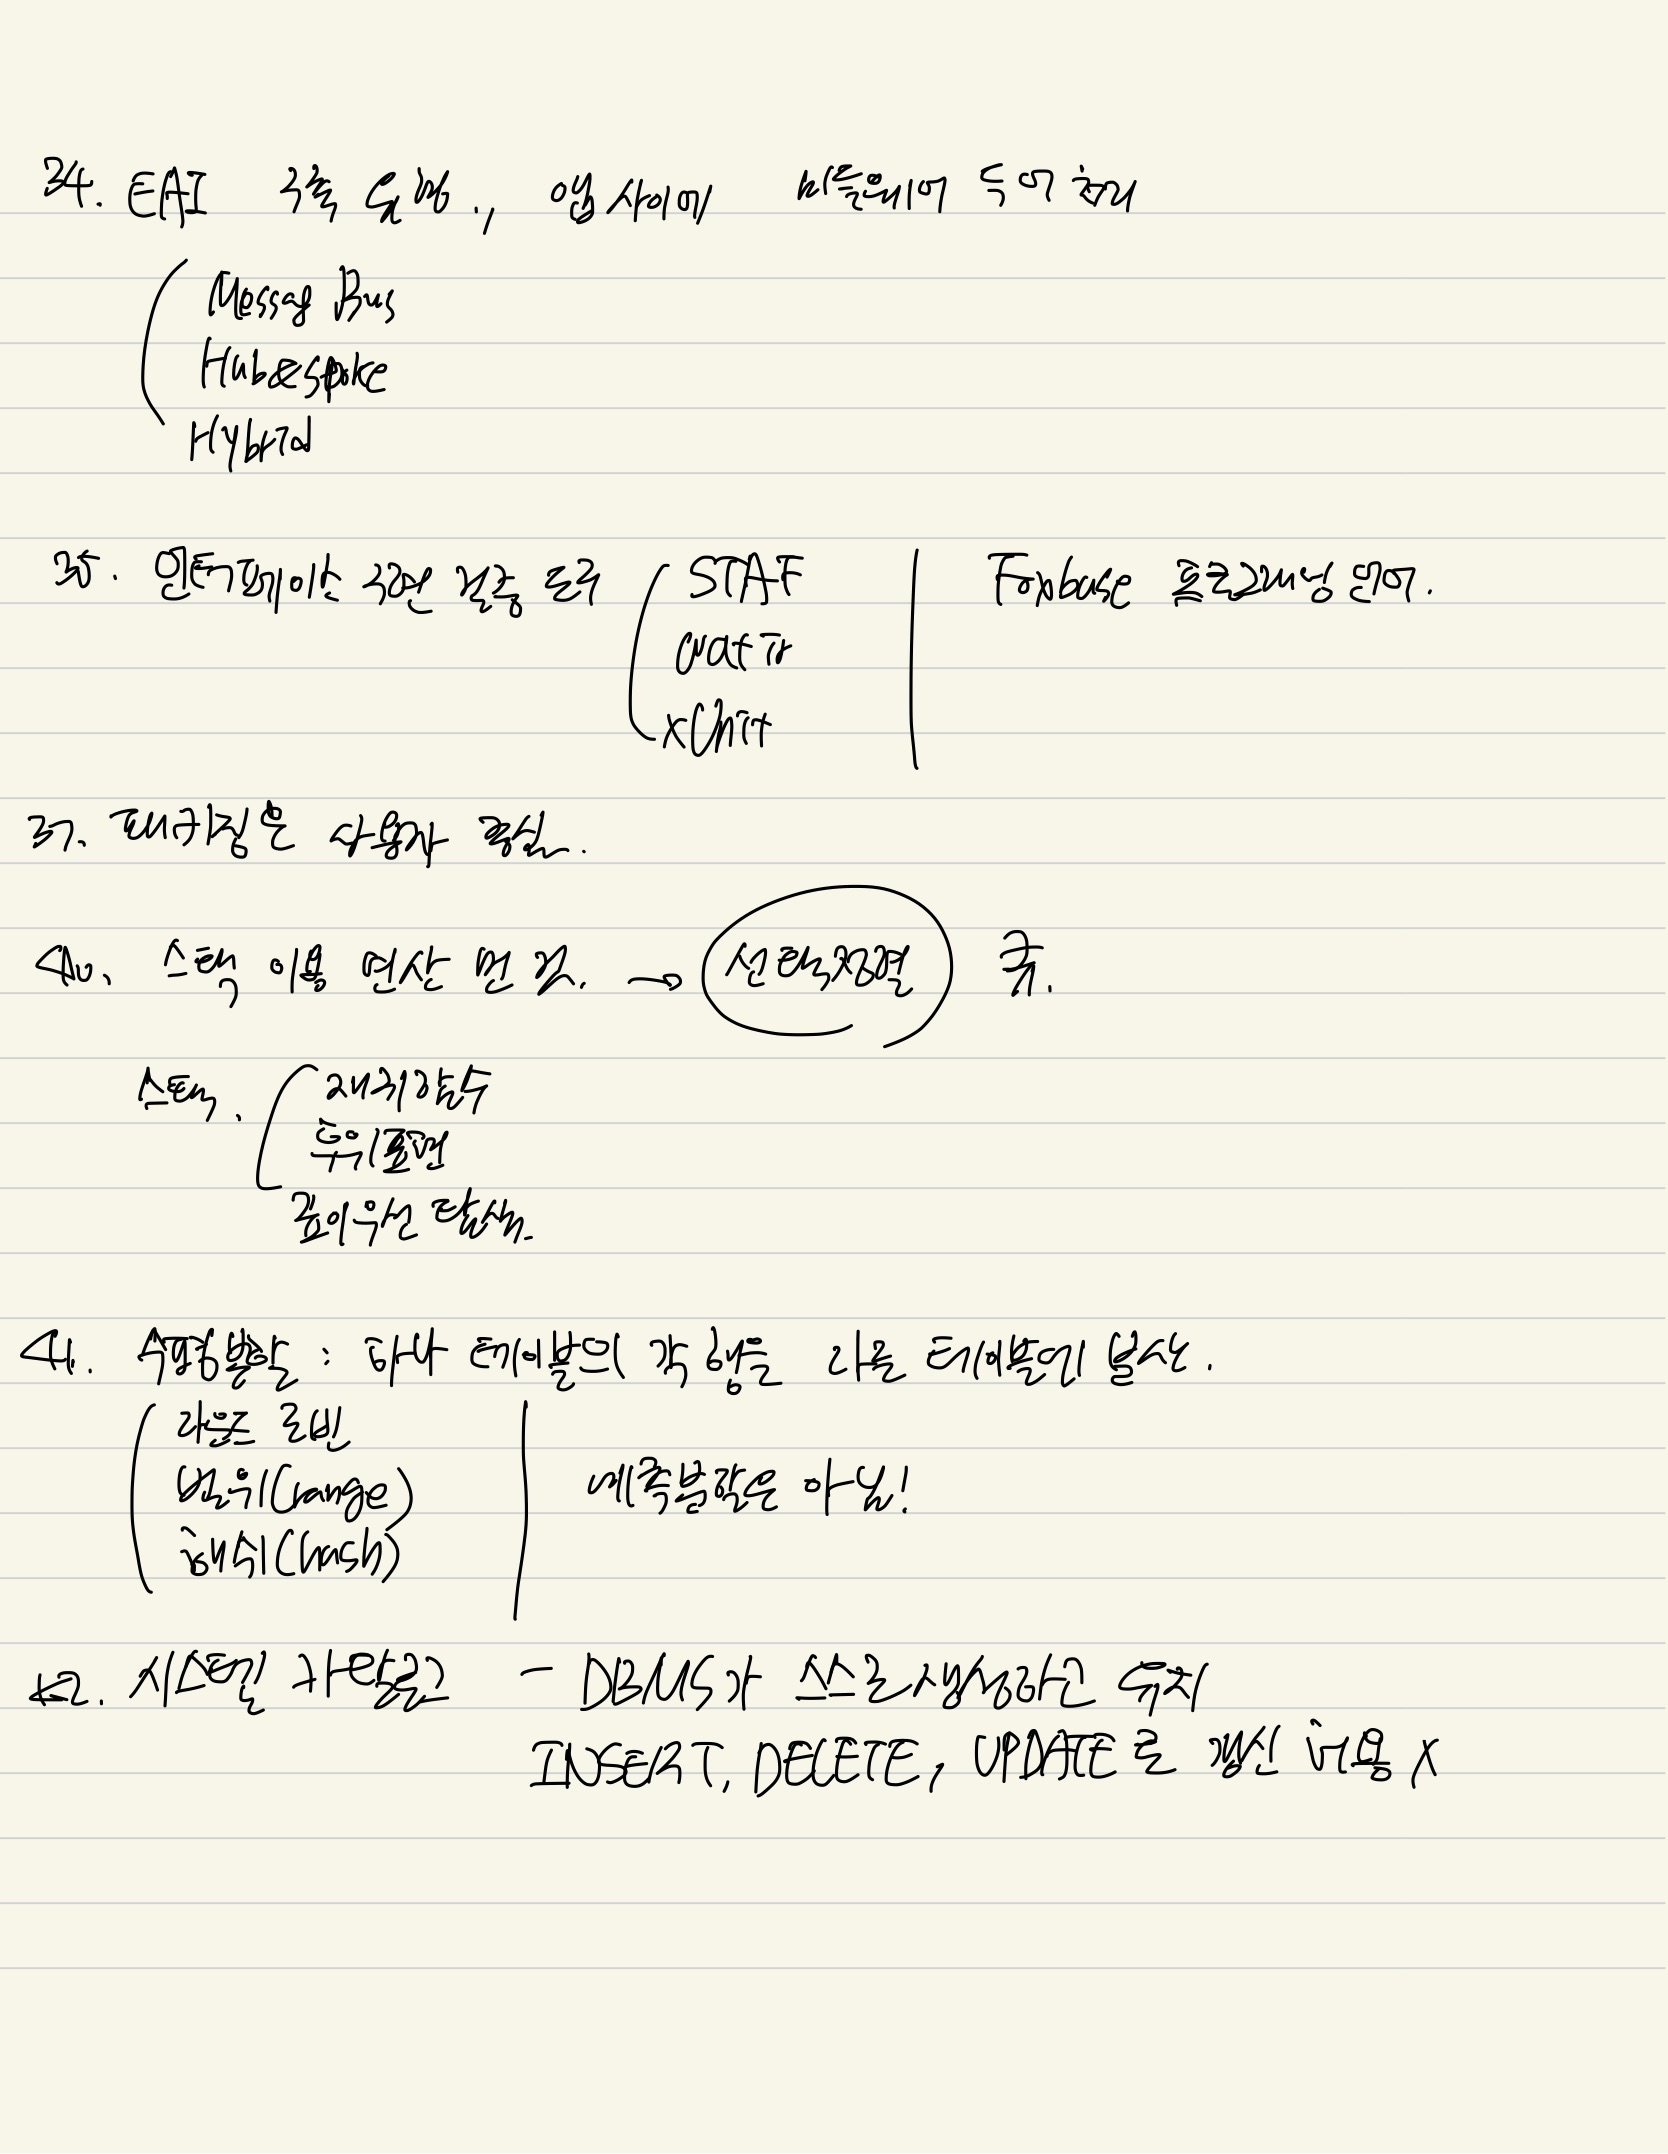 34. EAI 구축 유형., 앱 사이에 미들웨어 두어 처리
Messag Bus
Hub&spoke
Hybrid
35. 인터페이스 구현 검증 도구 STAF Foxbase 프로그래밍 언어.
watir
xUnit
37. 패키징은 사용자 중심.
40. 스택 이용 연산 먼 것. → 선택정렬 큐.
스택. 재귀함수
후위표현
깊이우선 탐색.
41. 수평분할 : 하나 테이블의 각 행을 다른 테이블에 분산.
라운드 로빈
범위(range) 예측분할은 아님!
해쉬(hash)
42. 시스템 카탈로그 - DBMS가 스스로 생성하고 유지
INSERT, DELETE, UPDATE로 갱신 허용 X